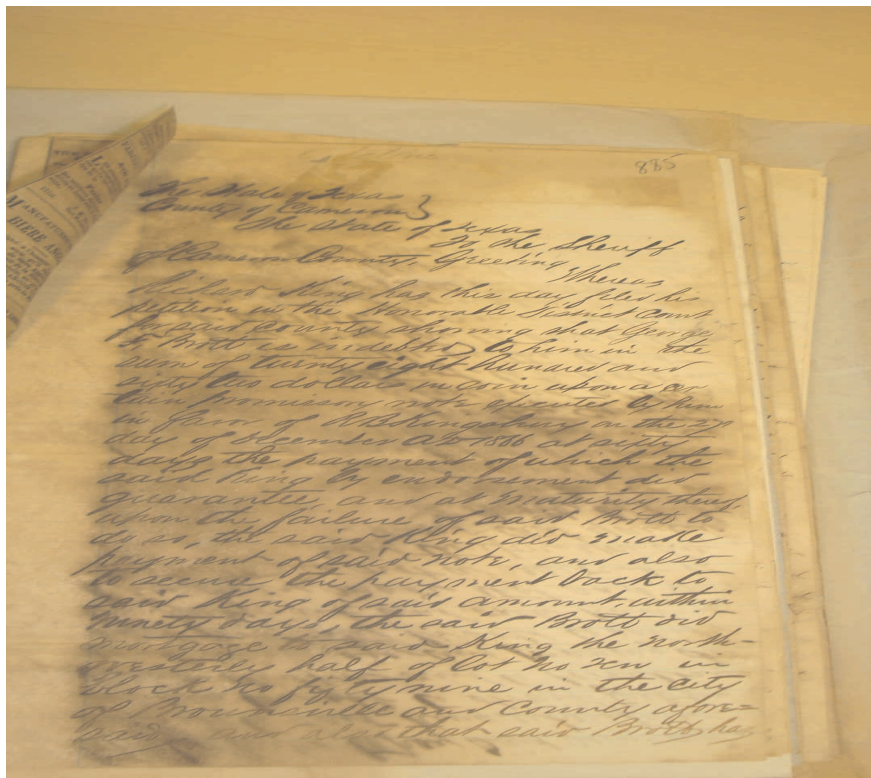 885
The State of Texas
County of Cameron }
The State of Texas
To the Sheriff
of Cameron County, Greeting
Whereas
Richard King has this day filed his
petition in the Honorable District court
for said County showing that George
Brott is indebted to him in the
sum of twenty eight Hundred and
sixty two dollars in coin upon a cer
tain promissory note executed by him
in favor of R B Kingsbury on the 27th
day of December AD 1866 at sixty
days the payment of which the
said King by endorsement did
guarantee and at maturity thereof
upon the failure of said Brott to
do so, the said King did make
payment of said note, and also
to secure the payment back to
said King of said amount, within
ninety days, the said Brott did
mortgage to said King the north-
westerly half of lot No ten in
block No fifty nine in the city
of Brownsville and County afore=
said, and also that said Brott has
MANUFACTU
BIERE AN